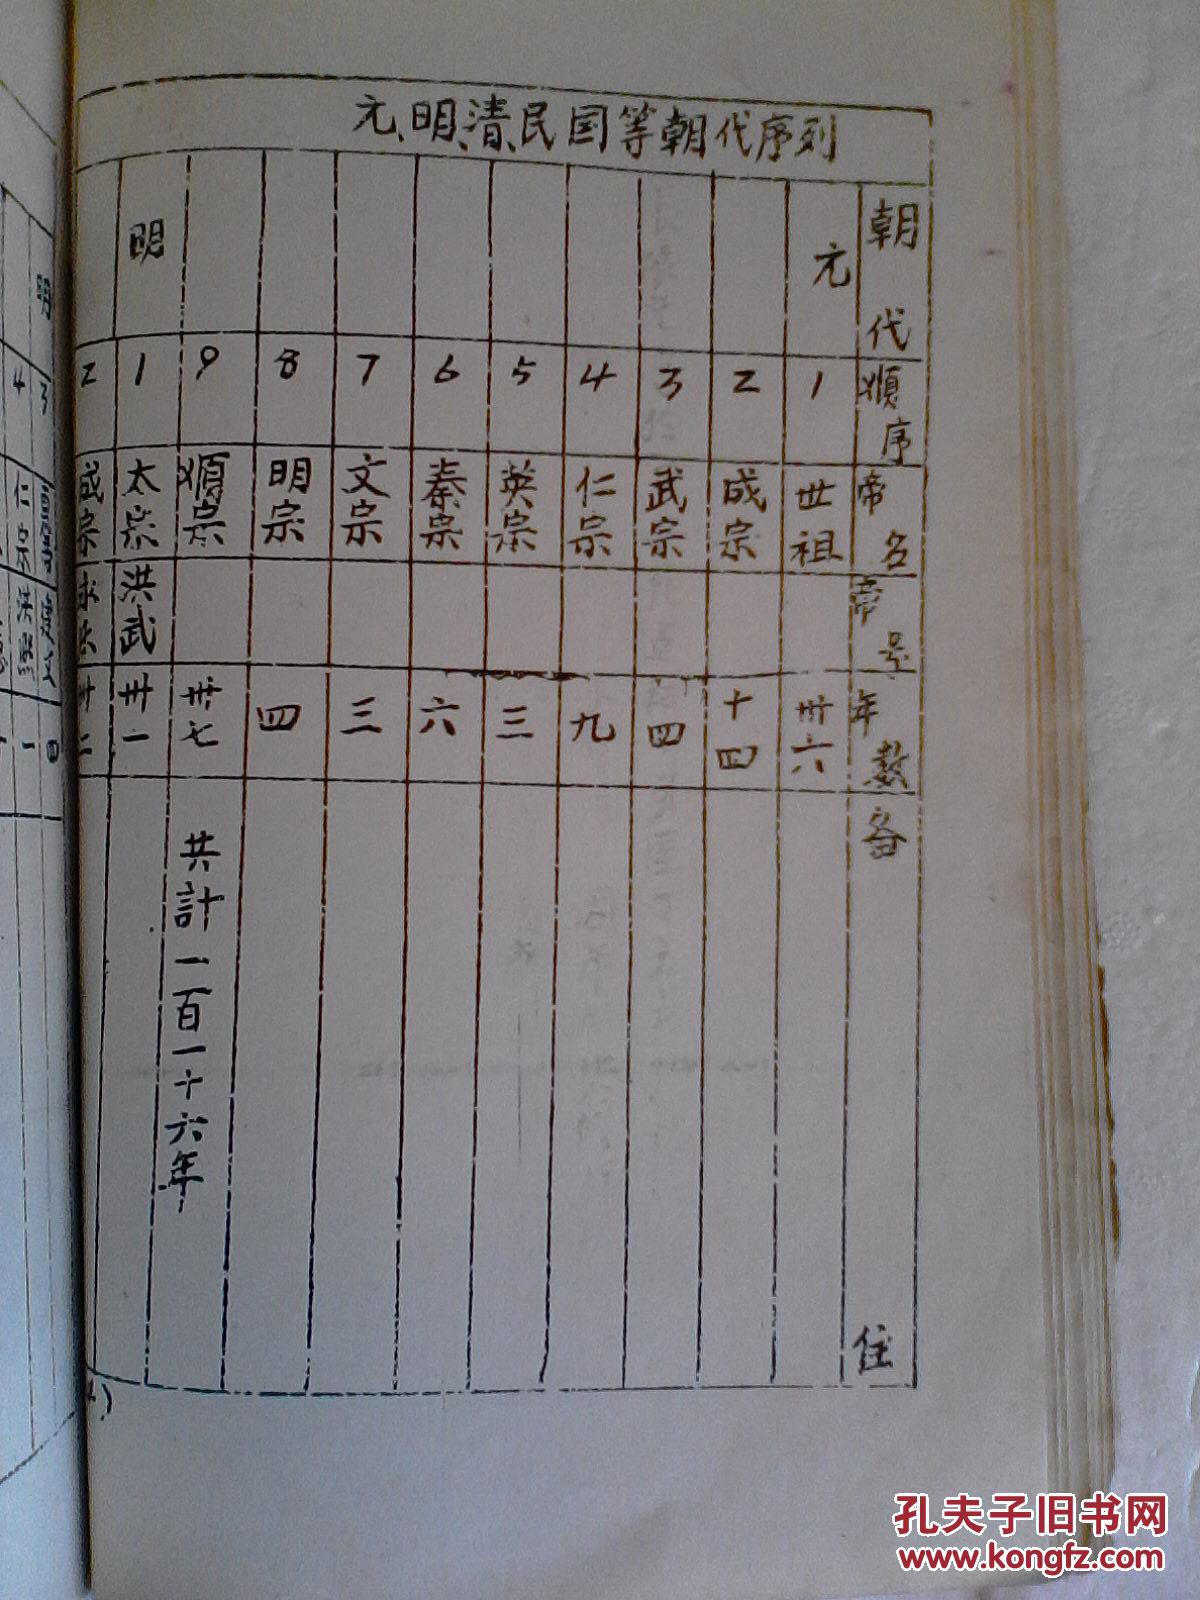 元、明、清、民国等朝代序列
朝代 顺序 帝名 帝号 年数 备住
元 1 世祖 卅六
2 成宗 十四
3 武宗 四
4 仁宗 九
5 英宗 三
6 秦宗 六
7 文宗 三
8 明宗 四
9 順宗 卅七 共計一百一十六年
明 1 太宗 洪武 卅一
2 成宗 卅二
明 3 建文 四
4 仁宗 洪熙 一
孔夫子旧书网
www.kongfz.com